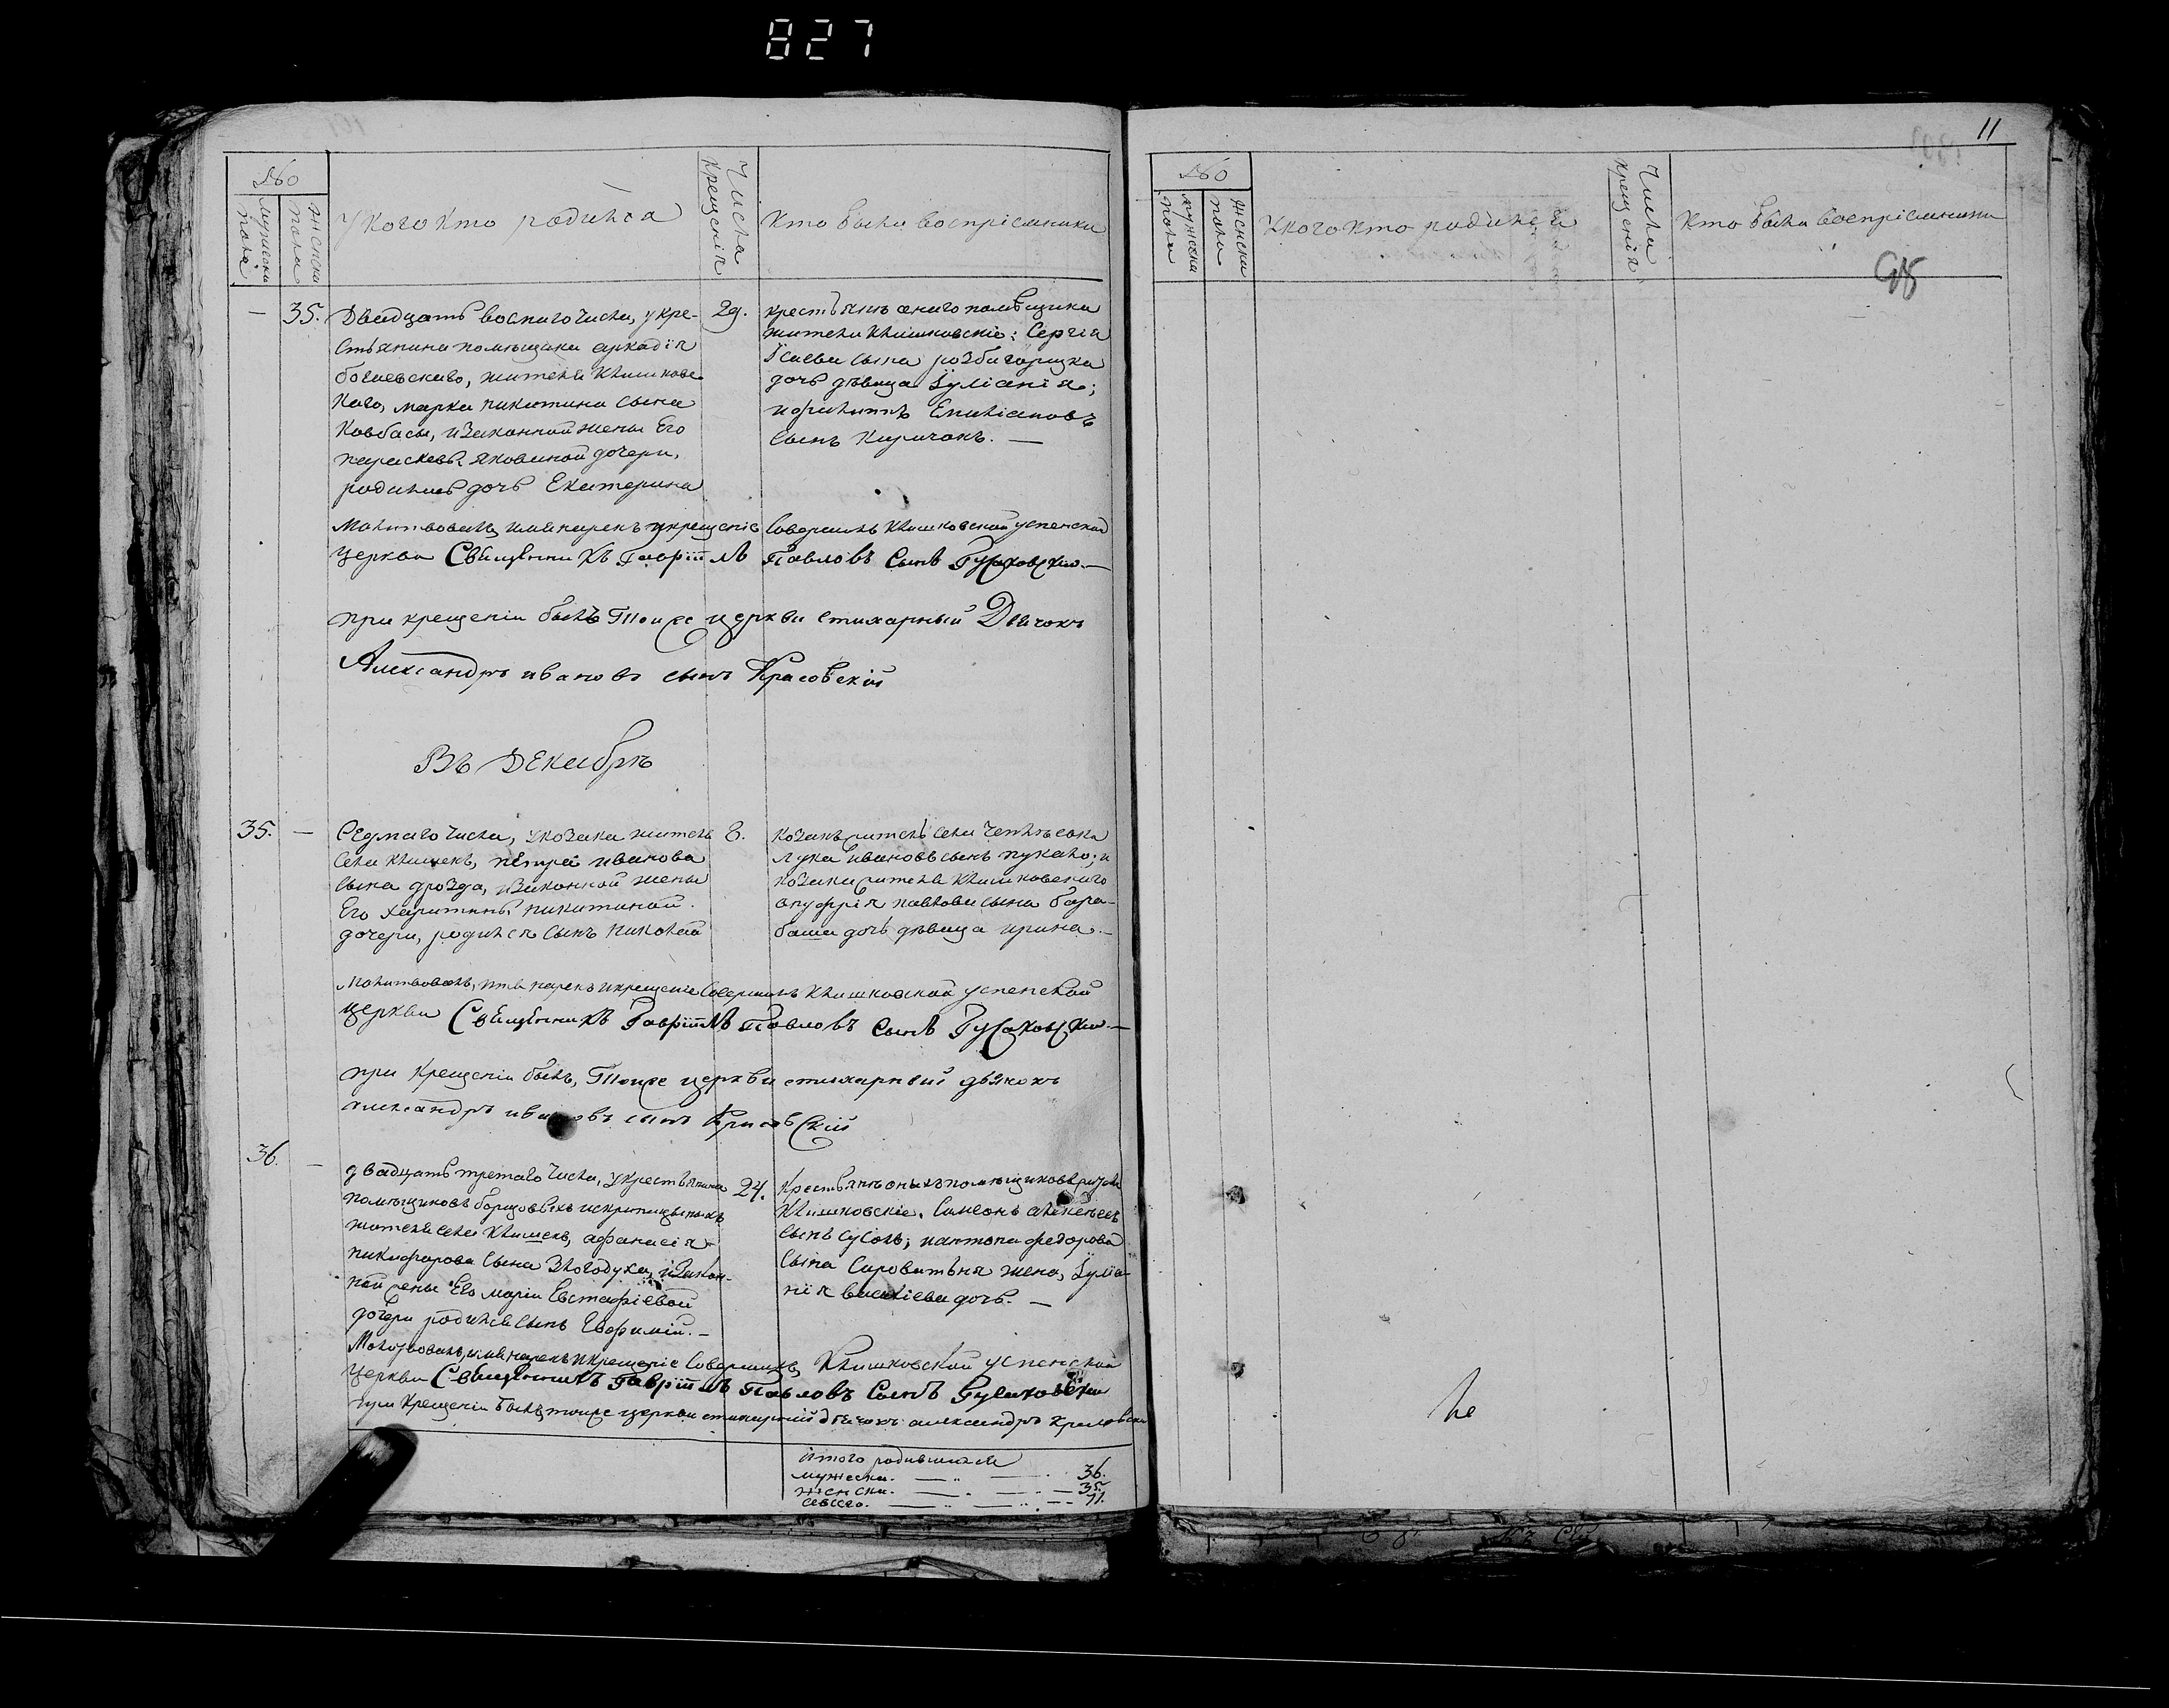 827
№
мужеска пола
женска пола
У кого кто родился
Числа крещенія
Кто были воспріемники
— 35. Двадцать восмого числа, у кре-
стьянина помѣщика аркадія
богаевскаго, жителя Клишковс
каго, марка никитина сына
Ковбасы, изаконной жены Его
параскевы яковиной дочери,
родилась дочь Екатерина
29.
крестьянъ оного помѣщика
жители Клишковскіе: Сергія
Ісаева сына
дочь дѣвица Іуліанія;
и филиппъ Емиліановъ
сынъ Киричокъ. —
Молитвовалъ, имя нарекъ и крещеніе Совершилъ Клишковской успенской
церкви Священникъ Гавріилъ Павловъ Сынъ Гусаковскій. —
при крещеніи былъ Тоиже церкви стихарный Дьячокъ
Александръ ивановъ сынъ Красовскій
Въ Декабрѣ
35. — Седмаго числа, у козака жителя
села Клишекъ, петра иванова
сына дрозда, изаконной жены
Его харитины никитиной
дочери, родился сынъ николай
8.
козакъ житель села
лука ивановъ сынъ
козака жителя Клишковского
онуфрія павлова сына бара-
баша дочь дѣвица ирина. —
Молитвовалъ, имя нарекъ и крещеніе Совершилъ Клишковской успенской
церкви Священникъ Гавріилъ Павловъ Сынъ Гусаковскій. —
при Крещеніи былъ, Тоиже церкви стихарный дьячокъ
александръ ивановъ сынъ Красовскій
36. — двадцать третаго числа, у крестьянина
помѣщиковъ борщовыхъ и скрипицыныхъ
жителя села Клишекъ, афанасія
никифорова сына Злогодуха, изакон-
ной жены Его маріи Евстафіевой
дочери родился сынъ Евфимій. —
24.
Крестьянъ оныхъ помѣщиковъ жители
Клишковскіе. Симеонъ алексѣевъ
сынъ Сусолъ; и антона федорова
сына жена, Іуліа-
нія василіева дочь. —
Молитвовалъ, имя нарекъ и крещеніе Совершилъ, Клишковской успенской
церкви Священникъ Гавріилъ Павловъ Сынъ Гусаковскій
при Крещеніи былъ, тоиже церкви стихарный дьячокъ александръ Красовскій
итого родившихся
мужеска. — 36.
женска. — 35.
обоего. — 71.
11
№
мужеска пола
женска пола
У кого кто родился
Числа крещенія
Кто были воспріемники